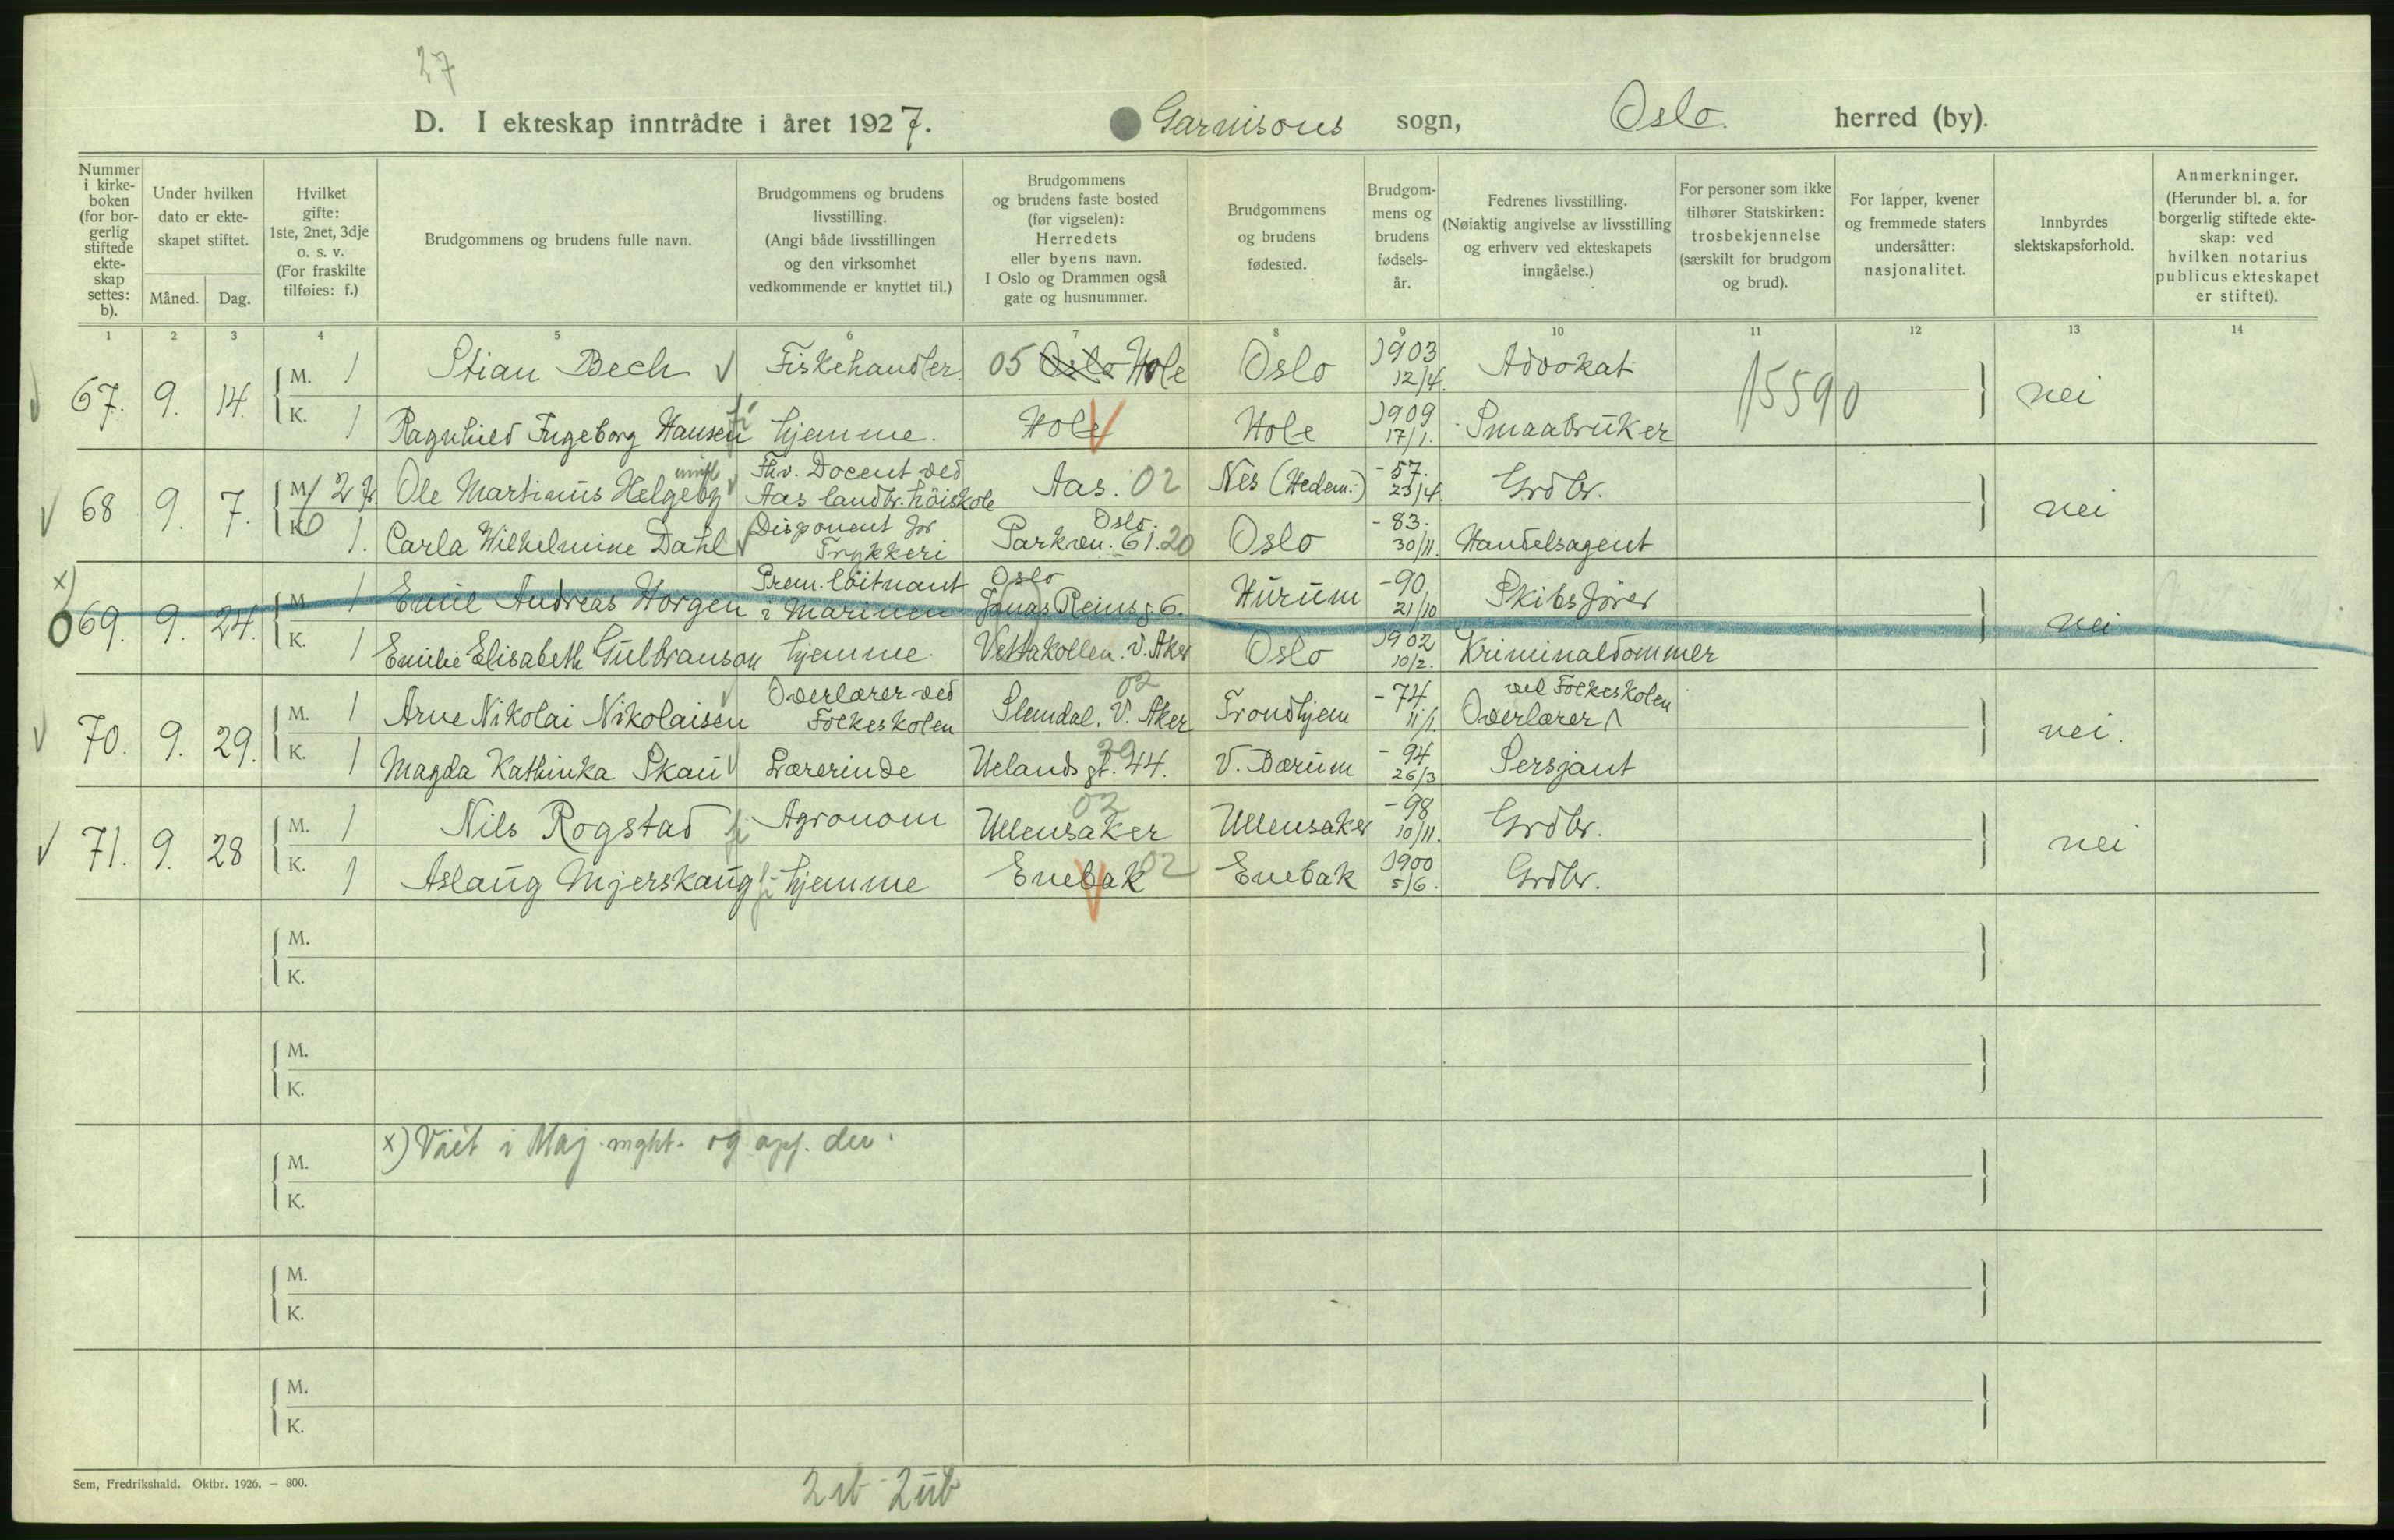 27
D. I ekteskap inntrådte i året 1927. Garnisons sogn, Oslo herred (by).
Nummer i kirke-boken (for bor-gerlig stiftede ekte-skap settes: b).
Under hvilken dato er ekte-skapet stiftet.
Måned. Dag.
Hvilket gifte: 1ste, 2net, 3dje o. s. v. (For fraskilte tilføies: f.)
Brudgommens og brudens fulle navn.
Brudgommens og brudens livsstilling. (Angi både livsstillingen og den virksomhet vedkommende er knyttet til.)
Brudgommens og brudens faste bosted (før vigselen): Herredets eller byens navn. I Oslo og Drammen også gate og husnummer.
Brudgommens og brudens fødested.
Brudgom-mens og brudens fødsels-år.
Fedrenes livsstilling. (Nøiaktig angivelse av livsstilling og erhverv ved ekteskapets inngåelse.)
For personer som ikke tilhører Statskirken: trosbekjennelse (særskilt for brudgom og brud).
For lapper, kvener og fremmede staters undersåtter: nasjonalitet.
Innbyrdes slektskapsforhold.
Anmerkninger. (Herunder bl. a. for borgerlig stiftede ekte-skap: ved hvilken notarius publicus ekteskapet er stiftet).
1 2 3 4 5 6 7 8 9 10 11 12 13 14
67. 9. 14. M. 1 Stian Bech Fiskehandler. 05 Oslo Hole Oslo 1903 12/4. Advokat 15590 nei
K. 1 Ragnhild Ingeborg Hansen hjemme. Hole Hole 1909 17/1. Smaabruker
68 9. 7. M. 2 Ole Martinus Helgeby Fhv. Docent ved Aas landbr. höiskole Aas. 02 Nes (Hedem.) - 57. 23/4. Grdbr. nei
K. 1. Carla Wilhelmine Dahl Disponent for Trykkeri Oslo Parkvn. 61. 20 Oslo - 83. 30/11. Handelsagent
x) 69. 9. 24. M. 1 Emil Andreas Horgen Prem. löitnant i Marinen Oslo Jonas Reinsg 6. Hurum - 90 21/10 Skibsfører nei
K. 1 Emilie Elisabeth Gulbranson hjemme. Vettakollen. V. Aker Oslo 1902 10/2. Kriminaldommer
70. 9. 29. M. 1 Arne Nikolai Nikolaisen Overlærer ved Folkeskolen 02 Slemdal. V. Aker Trondhjem - 74. 11/1. Overlærer ved Folkeskolen nei.
K. 1 Magda Kathinka Skau Lærerinde Uelandsgt. 44. V. Bærum - 94 26/3 Sersjant
71. 9. 28 M. 1 Nils Rogstad Agronom 02 Ullensaker Ullensaker - 98 10/11. Grdbr. nei
K. 1 Aslaug Mjerskaug hjemme Enebak 02 Enebak 1900 5/6. Grdbr.
M.
K.
M.
K.
x) Viet i Maj. mght. og opf. der.
M.
K.
M.
K.
M.
K.
Sem, Fredrikshald. Oktbr. 1926. — 800.